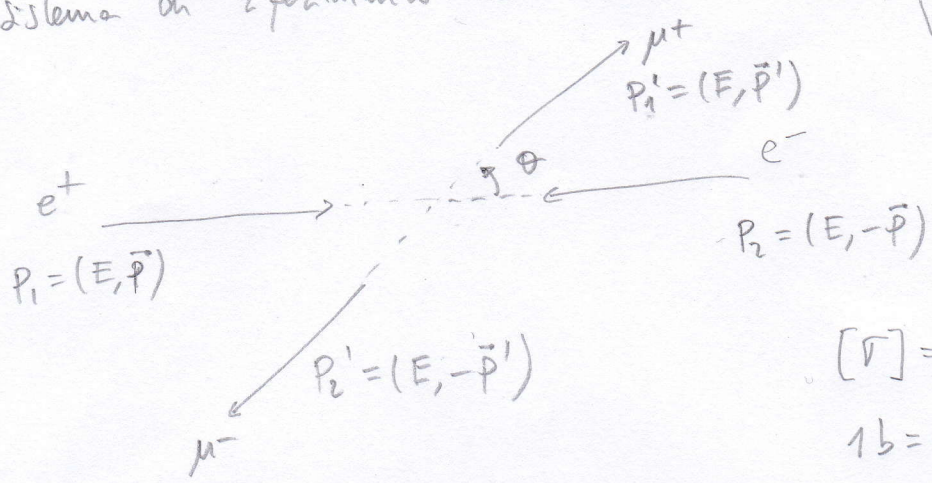 Sistema
μ+
P₁' = (E, p̄')
θ
e⁻
e⁺
P₂ = (E, -p̄)
P₁ = (E, p̄)
P₂' = (E, -p̄')
[σ] =
μ⁻
1 b =